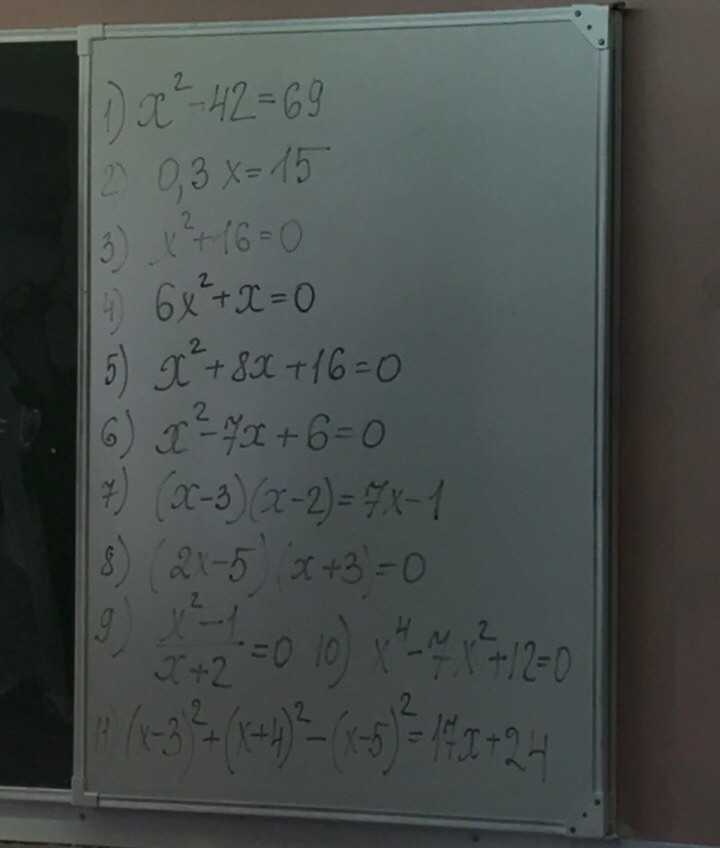 1) x²-42=69
2) 0,3x=15
3) x²+16=0
4) 6x²+x=0
5) x²+8x+16=0
6) x²-7x+6=0
7) (x-3)(x-2)=7x-1
8) (2x-5)(x+3)=0
9) (x²-1)/(x+2)=0 10) x⁴-7x²+12=0
11) (x-3)²+(x+4)²-(x-5)²=17x+24